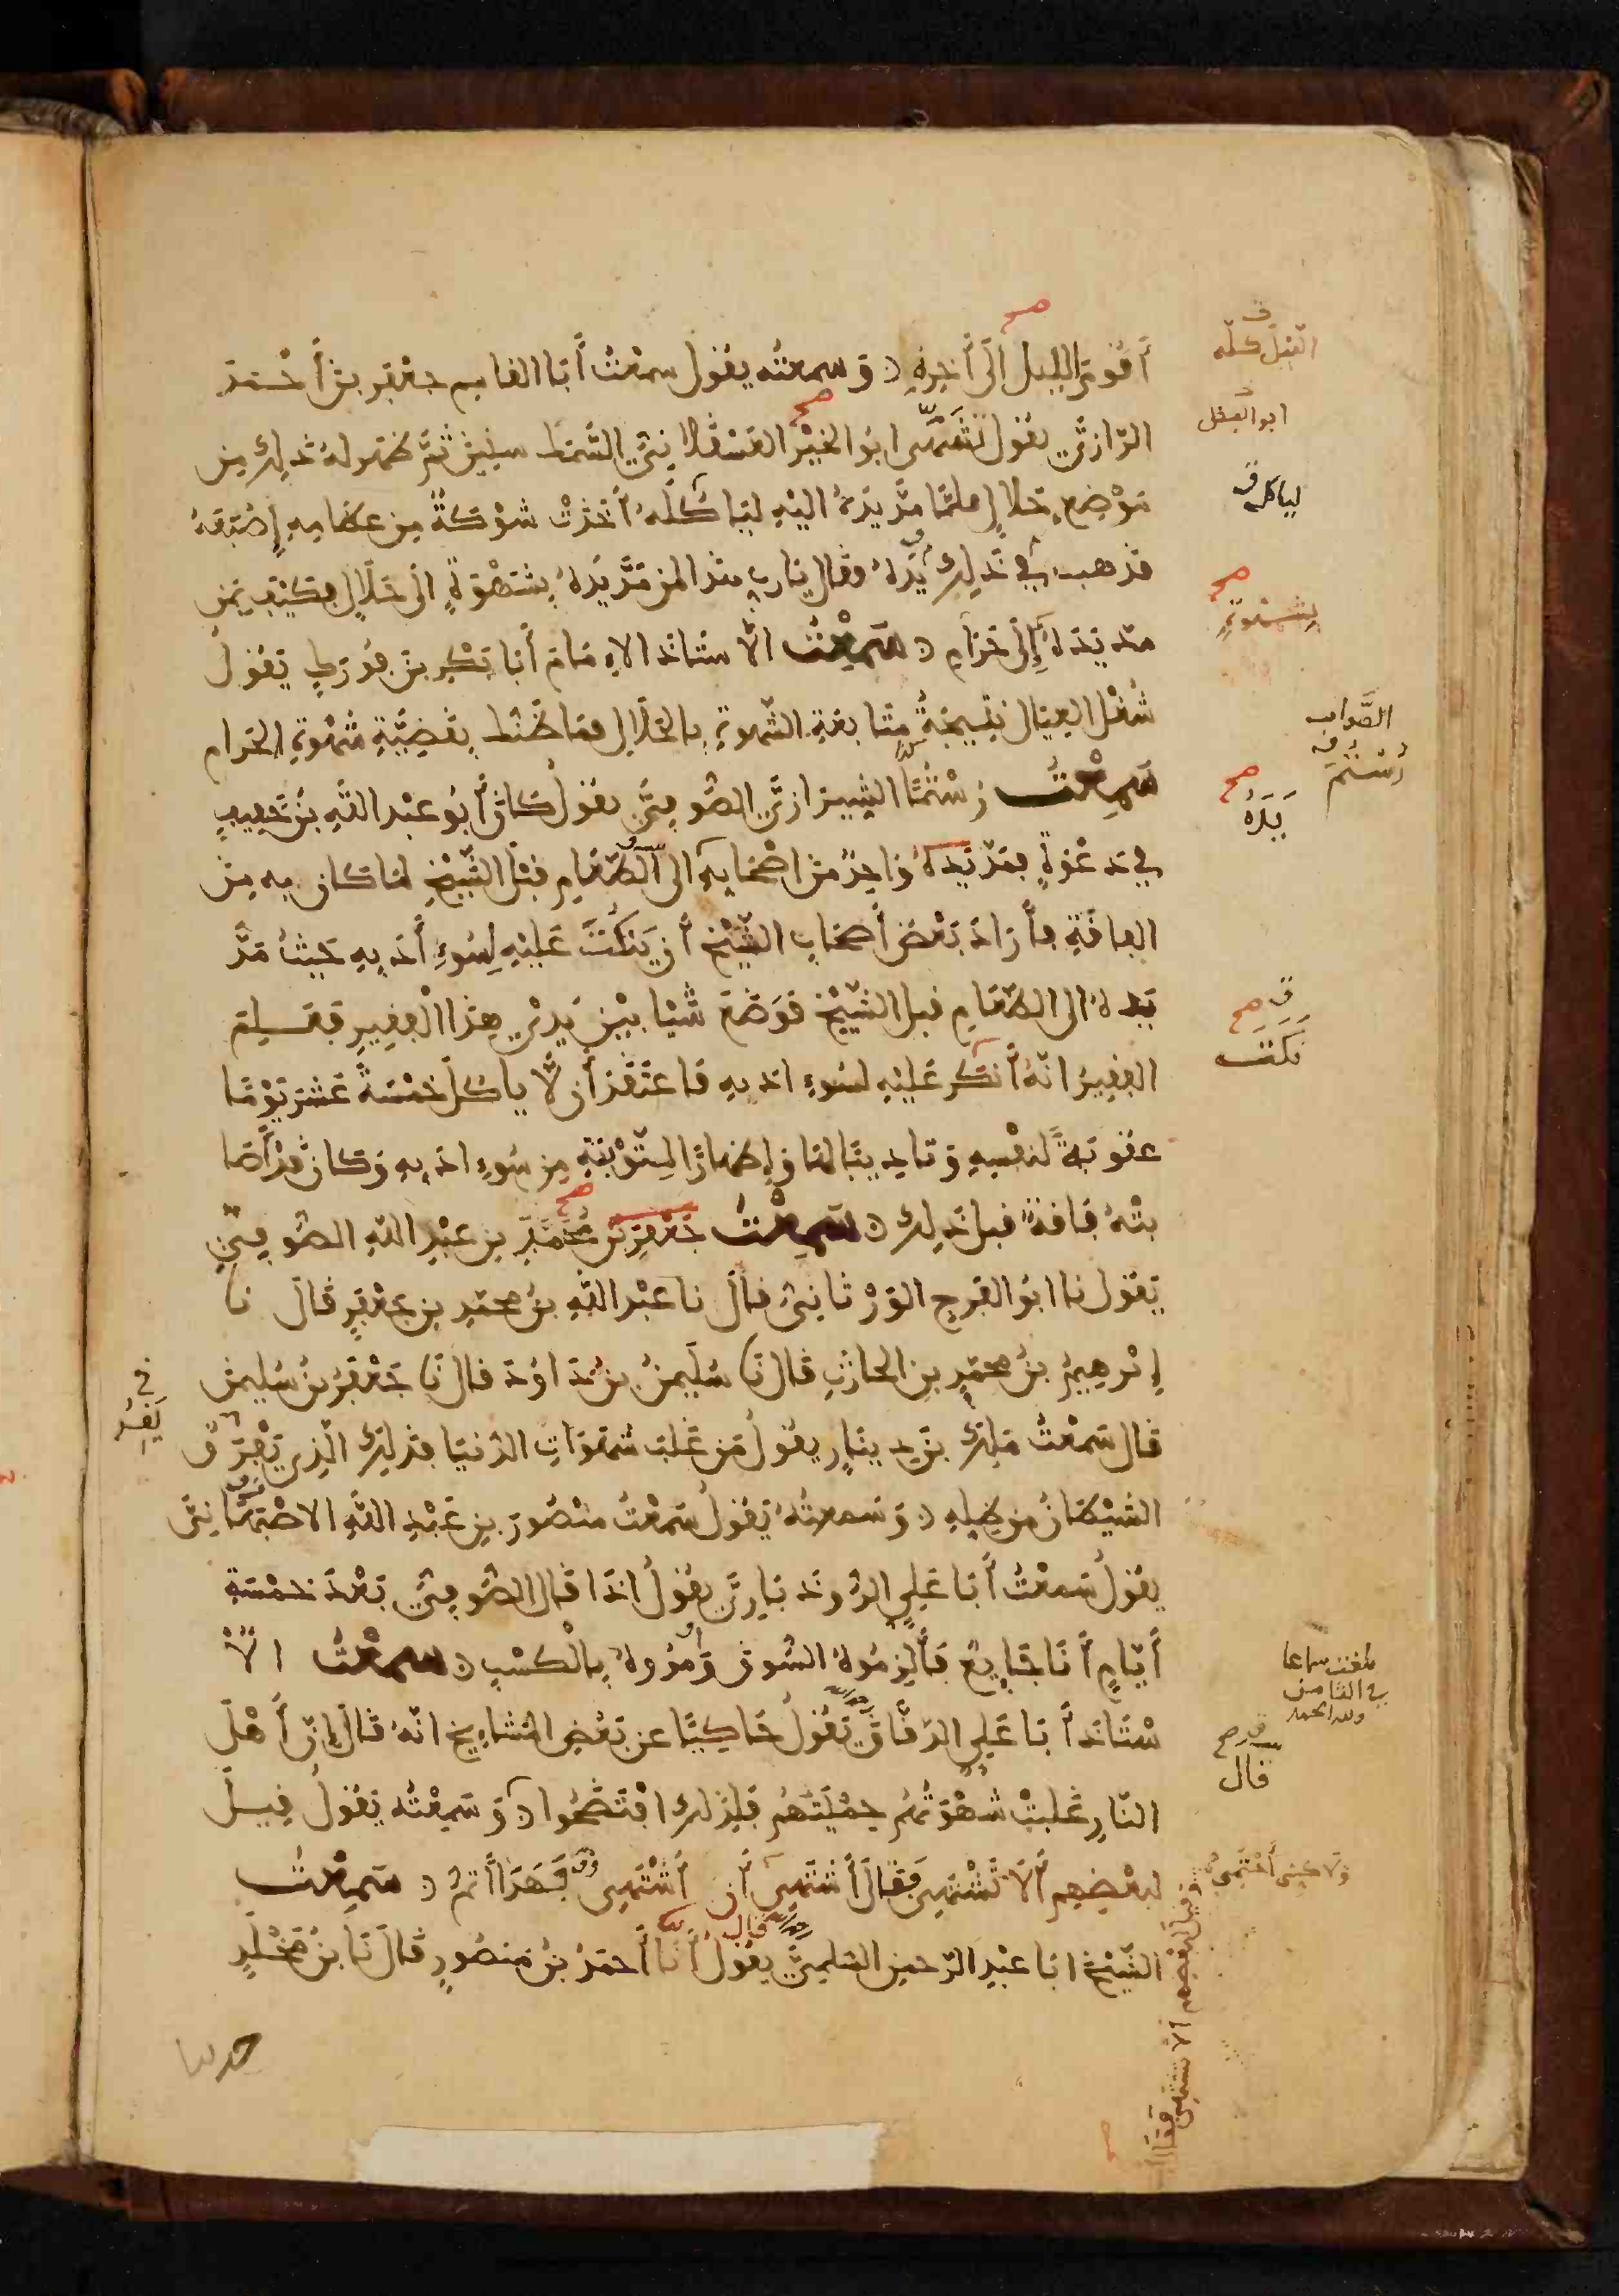 أقوم الليل الى أخره وسمعته يقول سمعت أبا القاسم جعفر بن أحمد
الرازي يقول تشهى ابو الخير العسقلاني السمك سنين ثم ظهر له ذلك من
موضع حلال فلما مد يده اليه لياكله أخذت شوكة من عظامه إصبعه
فذهبت في ذلك يده وقال يارب هذا لمن مد يده بشهوة الى حلال فكيف بمن
مد يده إلى حرام سمعت الاستاذ الامام أبا بكر بن فورك يقول
شغل العيال نتيجة متابعة الشهوة بالحلال فما ظنك بقضية شهوة الحرام
سمعت رستما الشيرازي الصوفي يقول كان أبو عبد الله بن خفيف
في دعوة فمد يده واحد من اصحابه الى الطعام قبل الشيخ لما كان به من
الفاقة فأراد بعض أصحاب الشيخ أن ينكت عليه لسوء أدبه حيث مد
يده الى الطعام قبل الشيخ فوضع شيا بين يدي هذا الفقير فعلم
الفقير انه أنكر عليه لسوء ادبه فاعتقد أن لا ياكل خمسة عشر يوما
عقوبة لنفسه وتاديبا لها وإظهارا لتوبته من سوء ادبه وكان قد أصا
بته فاقة قبل ذلك سمعت جعفر بن محمد بن عبد الله الصوفي
يقول نا ابو الفرج الورثاني قال نا عبد الله بن محمد بن جعفر قال نا
إبرهيم بن محمد بن الحارث قال نا سليمن بن داود قال نا جعفر بن سليمن
قال سمعت ملك بن دينار يقول من غلب شهوات الدنيا فذلك الذي يفرق
الشيطان من ظله وسمعته يقول سمعت منصور بن عبد الله الاصبهاني
يقول سمعت أبا علي الروذباري يقول اذا قال الصوفي بعد خمسة
أيام أنا جايع فألزموه السوق وأمروه بالكسب سمعت الا
ستاذ أبا علي الدقاق يقول حاكيا عن بعض المشايخ انه قال إن أهل
النار غلبت شهوتهم حميتهم فلذلك افتضحوا وسمعته يقول قيل
لبعضهم ألا تشتهي فقال أشتهي أن أشتهي فهذا أتم سمعت
الشيخ ابا عبد الرحمن السلمي يقول أنا أحمد بن منصور قال نا بن مخلد
الليل كله
ابو الفضل
لياكل
صح
بشهوة
الصواب
رستم
صح
يده
صح
نكت
يفر
بلغت سماعا
في الثامن
ولله الحمد
صح
قال
ولاكني أحتمي
وقيل لبعضهم ألا تشتهي فقال